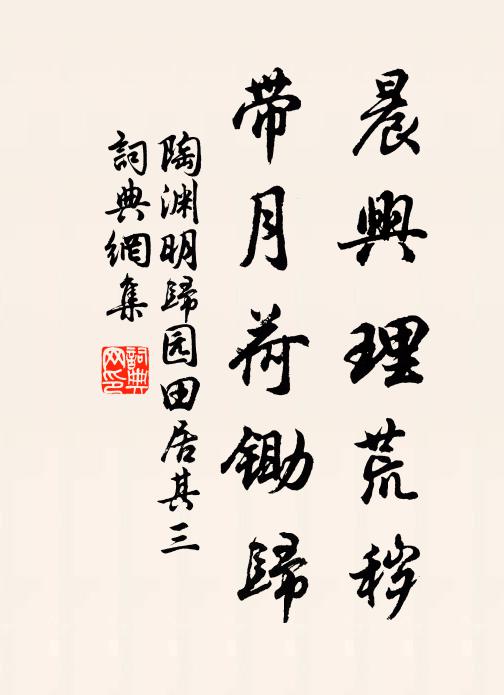 晨興理荒穢
带月荷锄歸
陶渊明歸园田居其三
詞典網集
詞典
网印